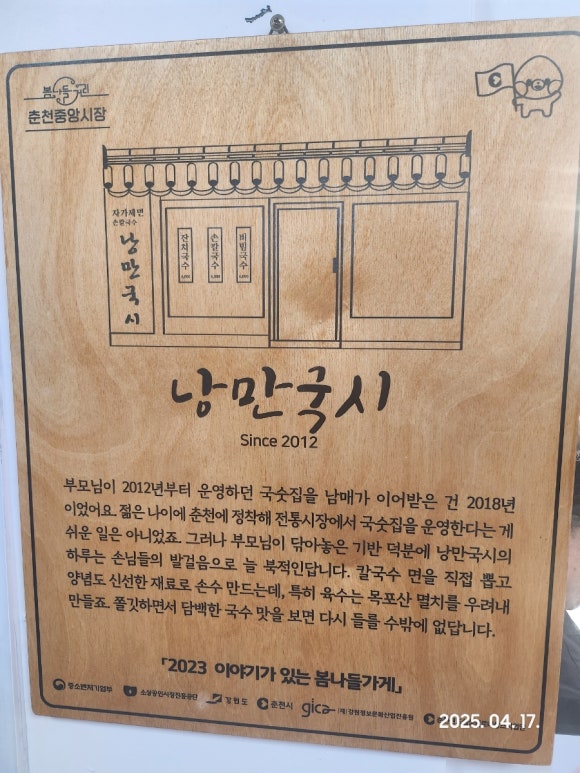 봄나들거리
춘천중앙시장
자가제면
손칼국수
낭만국시
잔치국수
손칼국수
비빔국수
낭만국시
Since 2012
부모님이 2012년부터 운영하던 국숫집을 남매가 이어받은 건 2018년
이었어요. 젊은 나이에 춘천에 정착해 전통시장에서 국숫집을 운영한다는 게
쉬운 일은 아니었죠. 그러나 부모님이 닦아놓은 기반 덕분에 낭만국시의
하루는 손님들의 발걸음으로 늘 북적인답니다. 칼국수 면을 직접 뽑고
양념도 신선한 재료로 손수 만드는데, 특히 육수는 목포산 멸치를 우려내
만들죠. 쫄깃하면서 담백한 국수 맛을 보면 다시 들를 수밖에 없답니다.
「2023 이야기가 있는 봄나들가게」
중소벤처기업부 소상공인시장진흥공단 강원도 춘천시 gica (재)강원정보문화산업진흥원
2025. 04. 17.